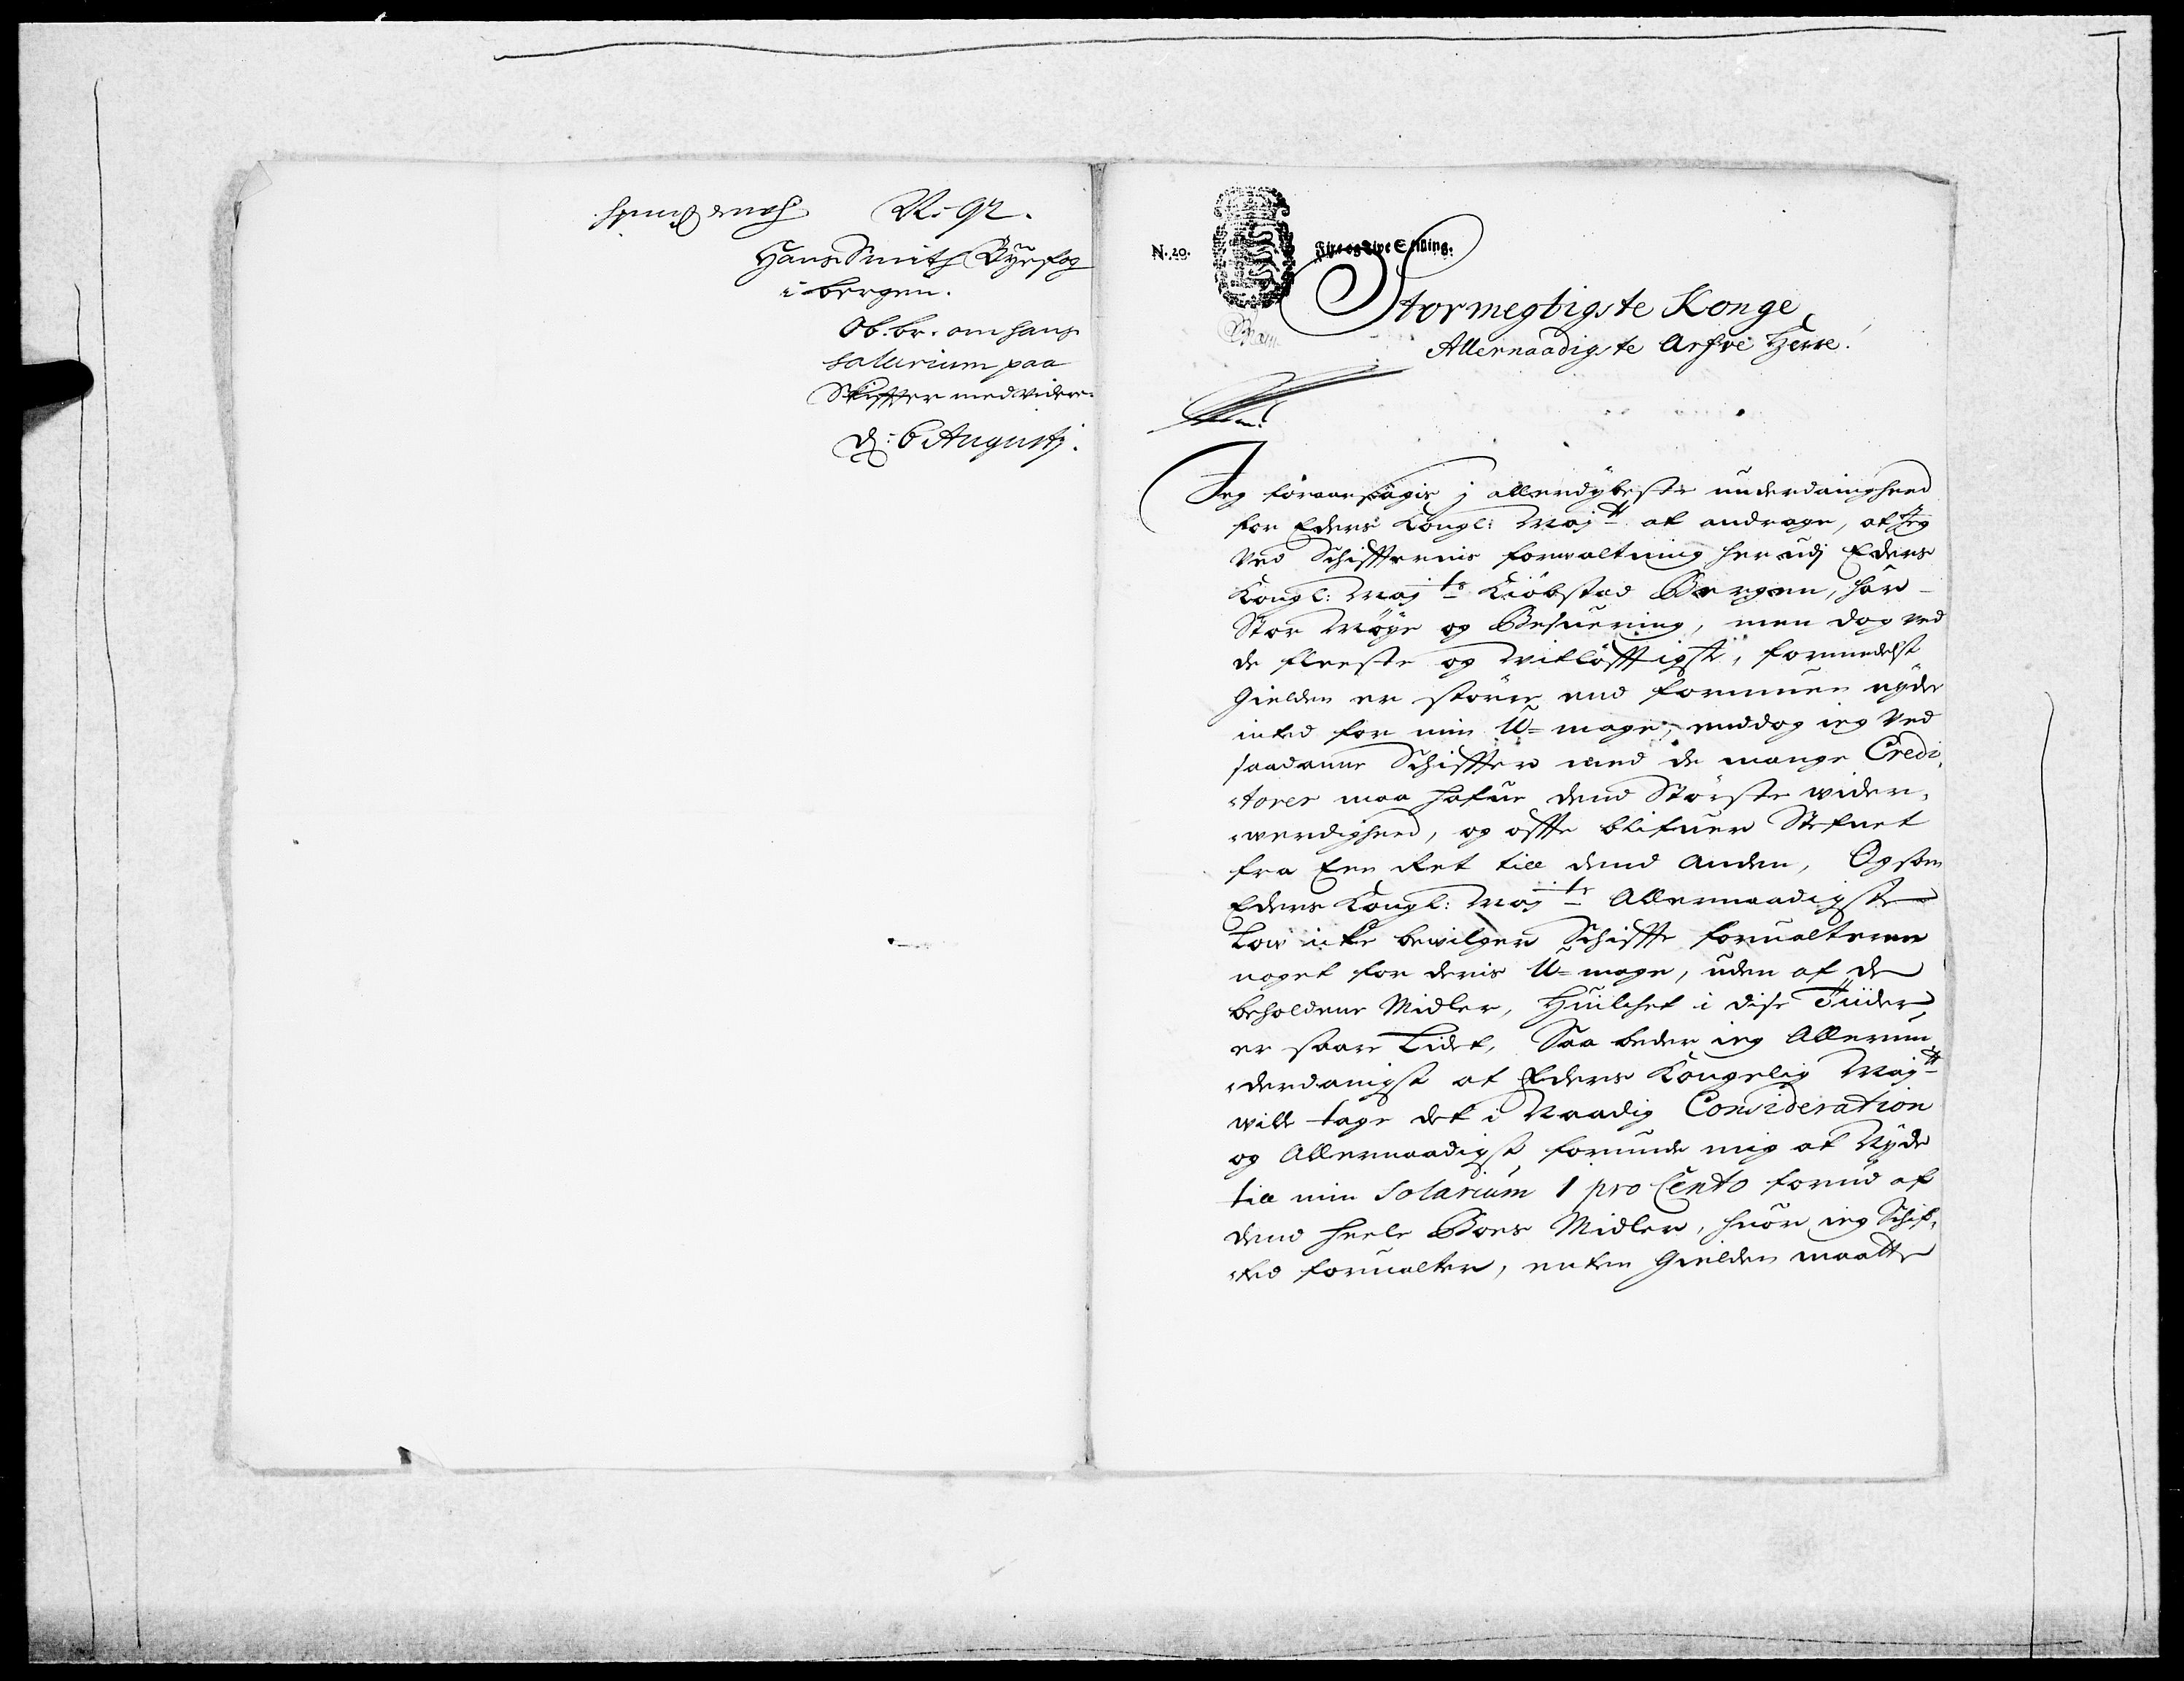 N. 92.
Hans Smith Byefog
i bergen.
Ob. br. om hans
salarium paa
Skiffter med videre.
d: 6 Augusti.
N. 20.
Fire og Tive Skilling.
Stormegtigste Konge
Allernaadigste Arfve Herre!
Jeg foraarsagis j allerdybeste underdanighed
for Eders Kongl: Maytt at andrage, at Jeg
ved Schiffternis forvaltning her udj Eders
Kongl: Mayts Kiöbstad Bergen, har
Stor Möye og Besuering, men dog ved
de fleeste og vitlöfftigste, formedelst
Gielden er större end formuen nyder
inted for min U-mage, enddog ieg ved
saadanne Schiffter med de mange Credi-
-torer maa hafue dend Störste wider-
-werdighed, og offte blifuer Stefnet
fra Een Ret till dend Anden, Og som
Eders Kongl: Mayts Allernaadigste
Low icke bevilger Schiffte forualterne
noget for deris U-mage, uden af de
beholdene Midler, Huilchet i disse Tiider
er saare Lidet, Saa beder ieg Allerun-
-derdanigst at Eders Kongelig Maytt
wille tage det i Naadig Consideration
og Allernaadigst forunde mig at Nyde
till min Salarium 1 pro Cento forud af
dend heele Boes Midler, huor ieg Schif-
-ted forualter, enten Gielden maatte